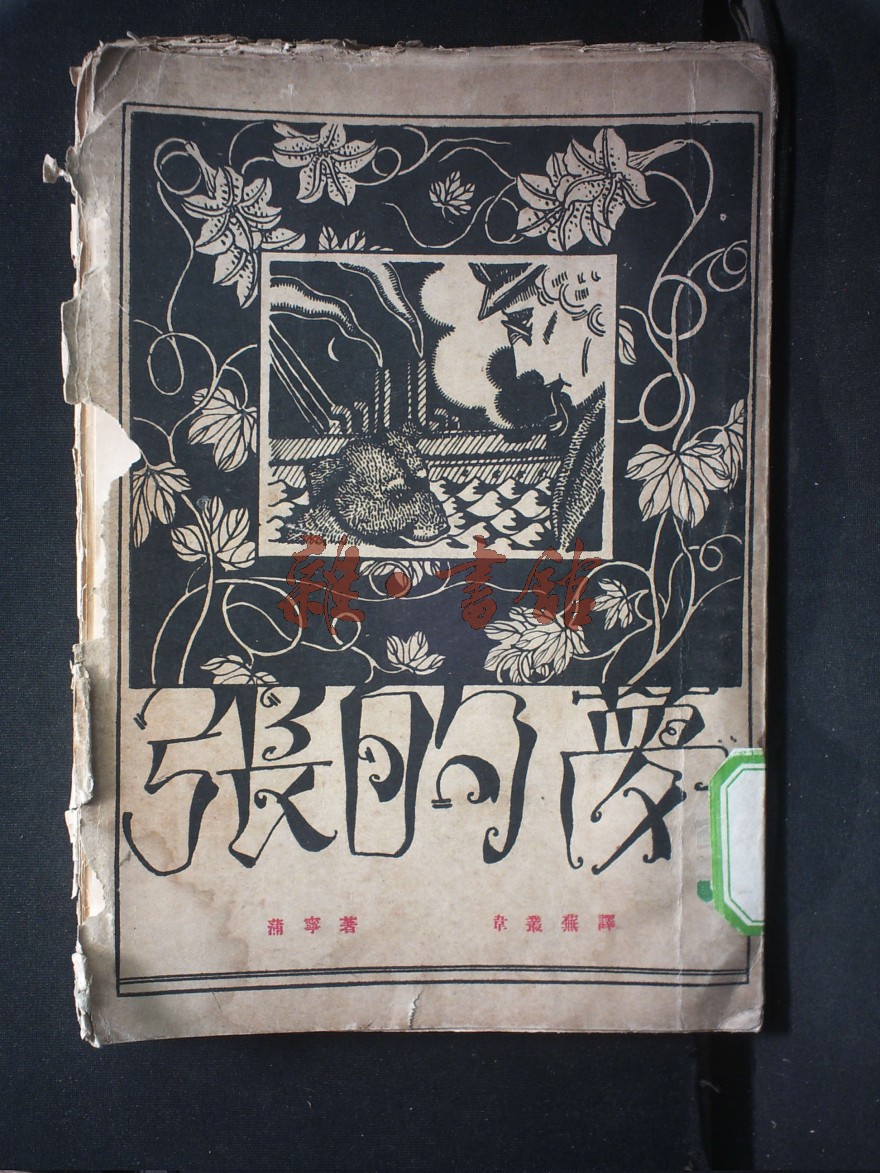 雜·書館
張的夢
蒲寧著 韋叢蕪譯